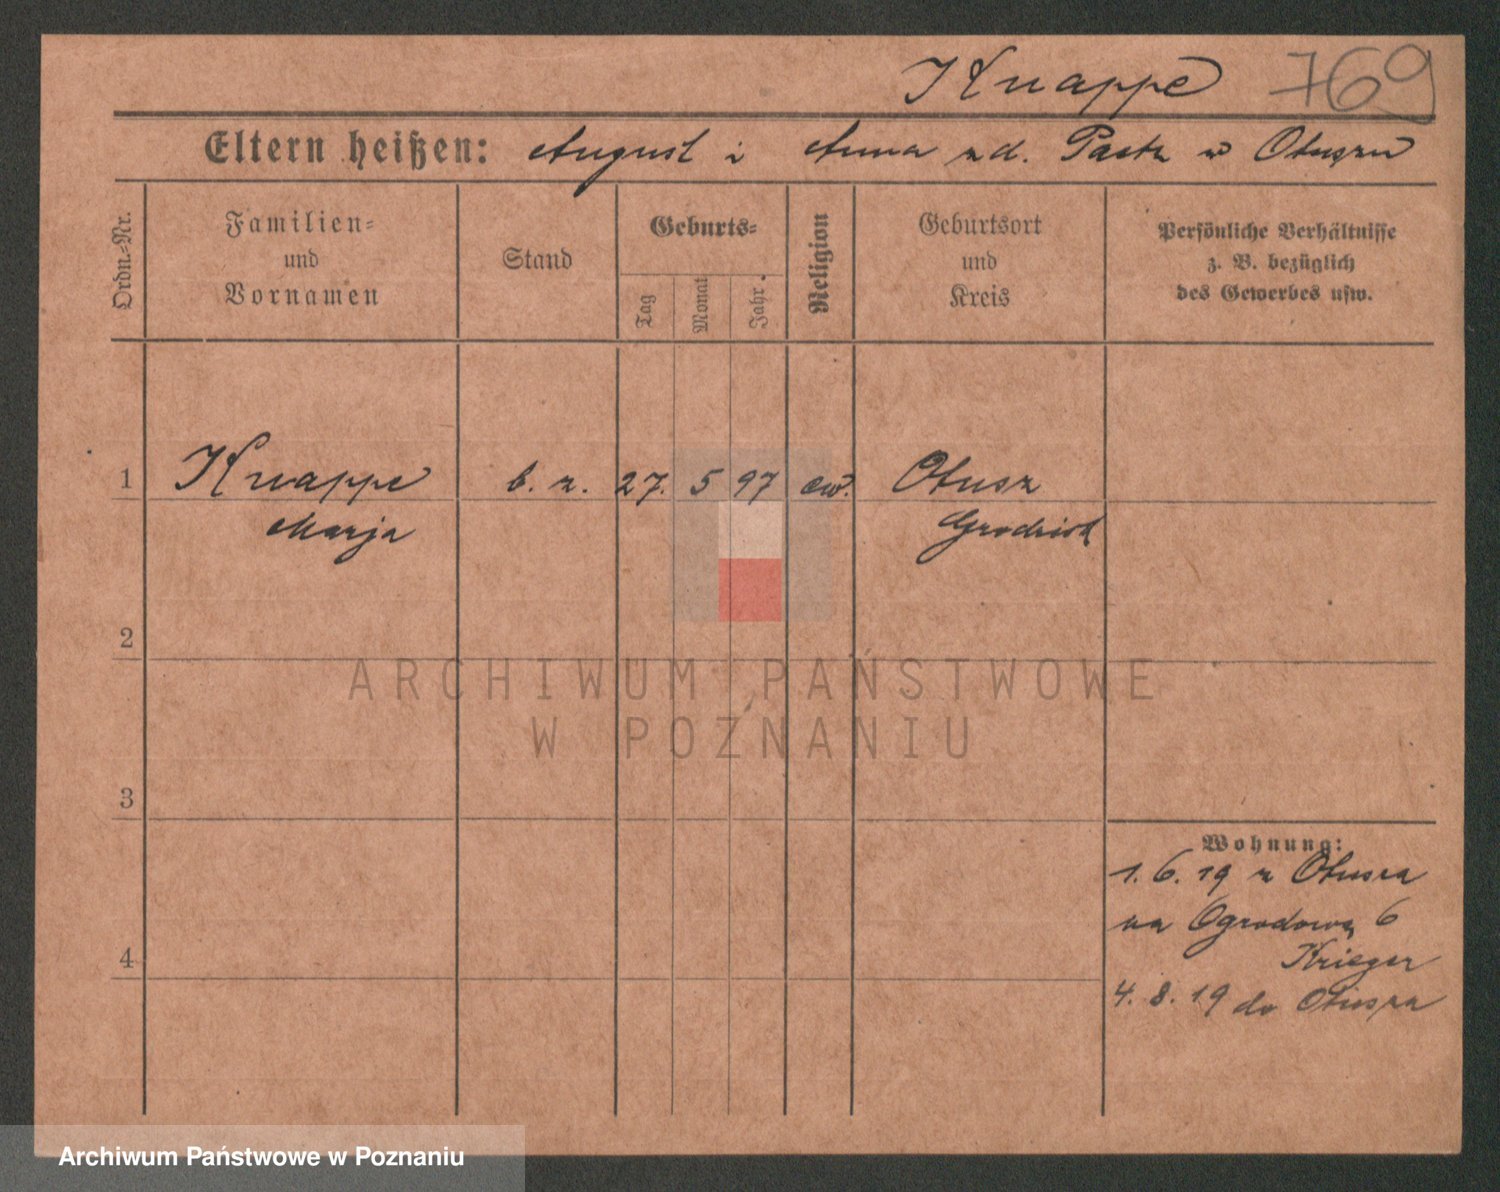 Knappe 769
Eltern heißen: August i Anna zd. Pastz w Otuszu
Ordn.-Nr.
Familien-
und
Vornamen
Stand
Geburts-
Tag
Monat
Jahr.
Religion
Geburtsort
und
Kreis
Persönliche Verhältnisse
z. B. bezüglich
des Gewerbes usw.
1 Knappe b. z. 27. 5 97 ew. Otusz
Marja Grodzisk
2
ARCHIWUM PAŃSTWOWE
W POZNANIU
3
Wohnung:
1. 6. 19 z Otusza
na Ogrodową 6
Krieger
4
4. 8. 19 do Otusza
Archiwum Państwowe w Poznaniu